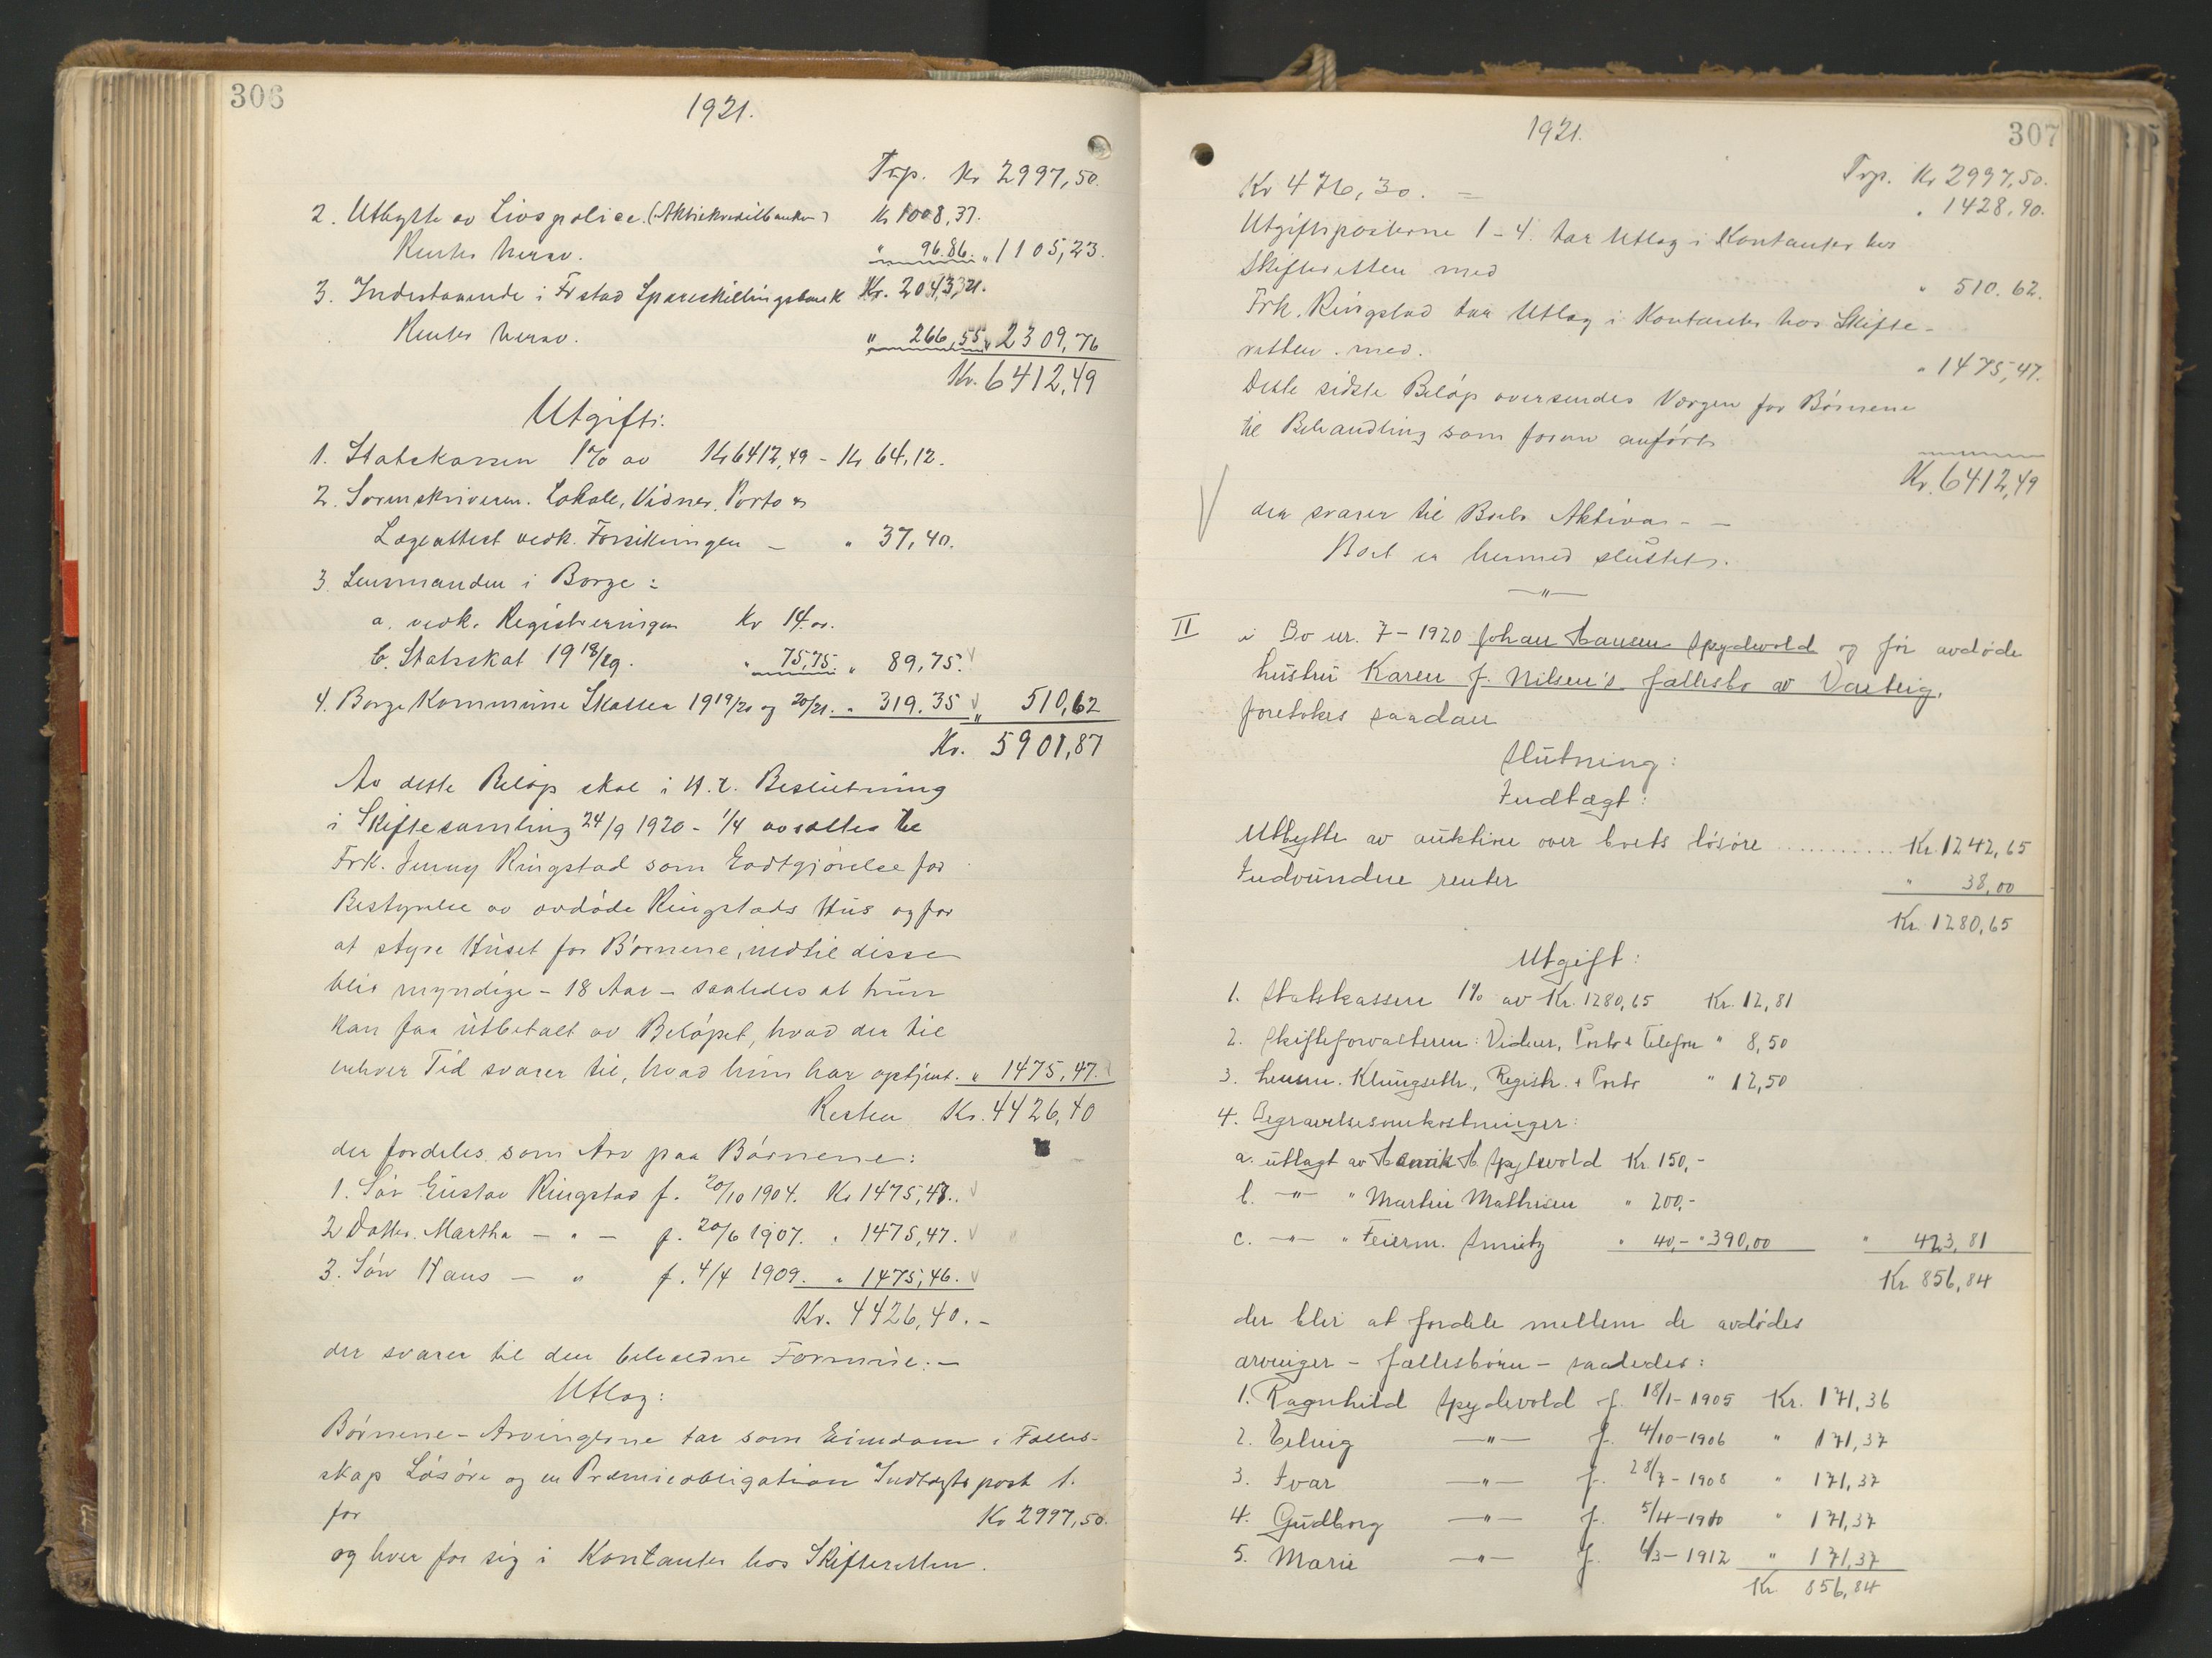 306
1921.
Trp. Kr 2997,50.
2. Utbytte av Livspolice (Aktiekreditbanken) Kr 1008,37.
Renter herav. " 96.86. " 1105,23.
3. Indestaaende i Fr.stad Spareskillingsbank Kr. 2043,21.
Renter herav. " 266,55 " 2309,76
Kr. 6412,49
Utgift:
1. Statskassen 1% av Kr 6412,49 - Kr 64,12.
2. Sorenskriveren. Lokale, Vidner, Porto &
Lægeattest vedk. Forsikringen — " 37,40.
3. Lensmanden i Borge:
a. vedk. Registreringen Kr 14.00.
b. Statsskat 1918/19. " 75,75. " 89,75.
4. Borge Kommune Skatter 1919/20 og 20/21. " 319.35 " 510,62
Kr. 5901,87
Av dette Beløp skal i H.t. Beslutning
i Skiftesamling 24/9 1920 - 1/4 avsættes til
Frk. Jenny Ringstad som Godtgjørelse for
Bestyrelse av avdøde Ringstads Hus og for
at styre Huset for Børnene, indtil disse
blir myndige - 18 Aar - saaledes at hun
kan faa utbetalt av Beløpet, hvad der til
enhver Tid svarer til, hvad hun har optjent. " 1475,47
Resten Kr. 4426,40
der fordeles som Arv paa Børnene:
1. Søn Gustav Ringstad f. 20/10 1904. Kr 1475,47.
2 Datter Martha — " — f. 20/6 1907. " 1475,47.
3. Søn Hans — " f. 4/4 1909. " 1475,46.
Kr. 4426,40.-
der svarer til den beholdne Formue.-
Utlæg:
Børnene - Arvingerne tar som Eiendom i Fælles-
skap Løsøre og en Præmieobligation Indtægtspost 1.
for Kr 2997,50.
og hver for sig i Kontanter hos Skifteretten.
307
1921.
Trp. Kr 2997,50.
Kr 476,30. = " 1428,90.
Utgiftsposterne 1-4. tar Utlæg i Kontanter hos
Skifteretten med " 510.62.
Frk. Ringstad tar Utlæg i Kontanter hos Skifte-
retten med. " 1475,47.
Dette sidste Beløp oversendes Værgen for Børnene
til Behandling som foran anført
Kr. 6412,49
der svarer til Boets Aktiva. —
Boet er hermed sluttet.
—"—
II i Bo nr. 7-1920 Johan Hansen Spydevold og før avdøde
hustru Karen J. Nilsen's fællesbo av Varteig,
foretokes saadan
Slutning:
Indtægt:
Utbytte av auktion over boets løsøre ........... Kr. 1242,65
Indvundne renter " 38,00
Kr. 1280,65
Utgift:
1. Statskassen 1% av Kr. 1280,65 Kr. 12,81
2. Skifteforvalteren: Vidner, Porto & Telefon " 8,50
3. Lensm. Klungseth, Registr. & Porto " 12,50
4. Begravelsesomkostninger:
a. utlagt av Henrik H. Spydevold Kr. 150,-
b. —"— " Martin Mathisen " 200,-
c. —"— " Feierm. Smietz " 40,- " 390,00 " 423,81
Kr. 856,84
der blir at fordele mellem de avdødes
arvinger - fællesbørn - saaledes:
1. Ragnhild Spydevold f. 18/1-1905 Kr. 171,36
2. —"— f. 4/10-1906 " 171,37
3. Ivar —"— f. 28/7-1908 " 171,37
4. Gudborg —"— f. 5/4-1910 " 171,37
5. Marie —"— f. 4/3-1912 " 171,37
Kr. 856,84